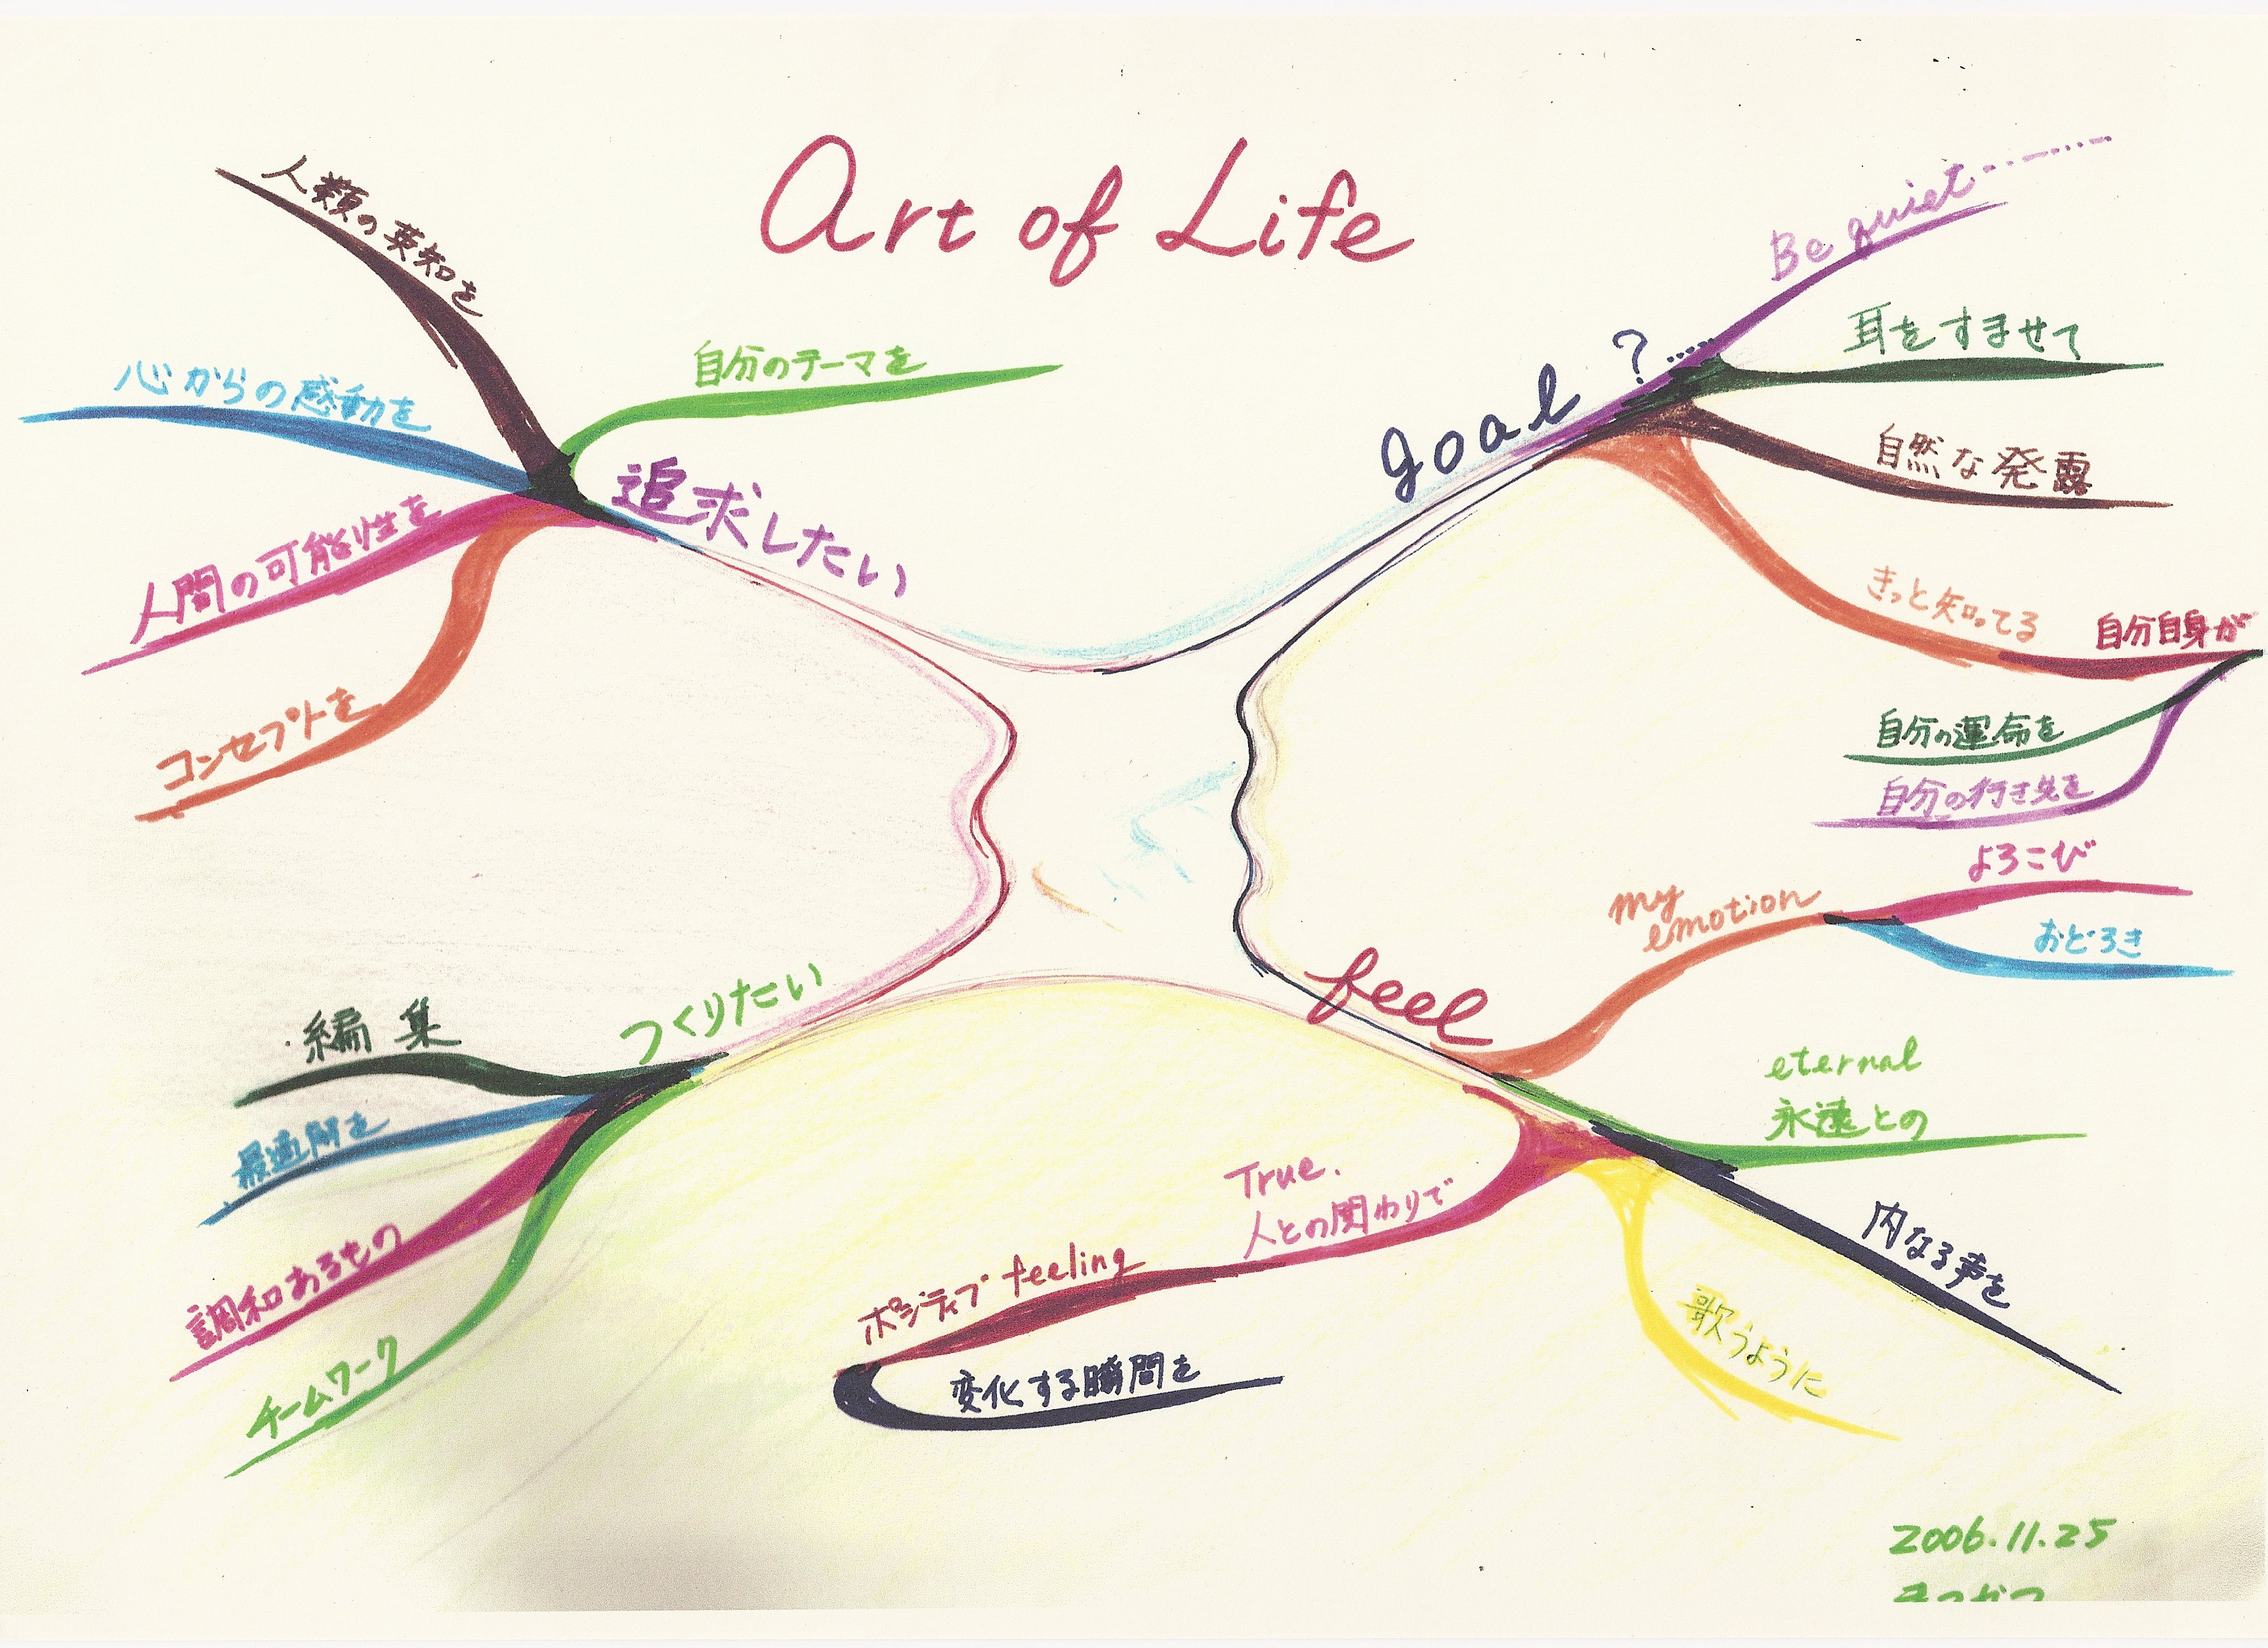 Art of Life
人類の英知を
自分のテーマを
心からの感動を
追求したい
人間の可能性を
コンセプトを
goal ?.....
Be quiet.........
耳をすませて
自然な発露
きっと知ってる
自分自身が
自分の運命を
自分の行き先を
feel
my
emotion
よろこび
おどろき
eternal
永遠との
内なる声を
歌うように
True.
人との関わりで
ポジティブ feeling
変化する瞬間を
つくりたい
編集
最適解を
調和あるもの
チームワーク
2006.11.25